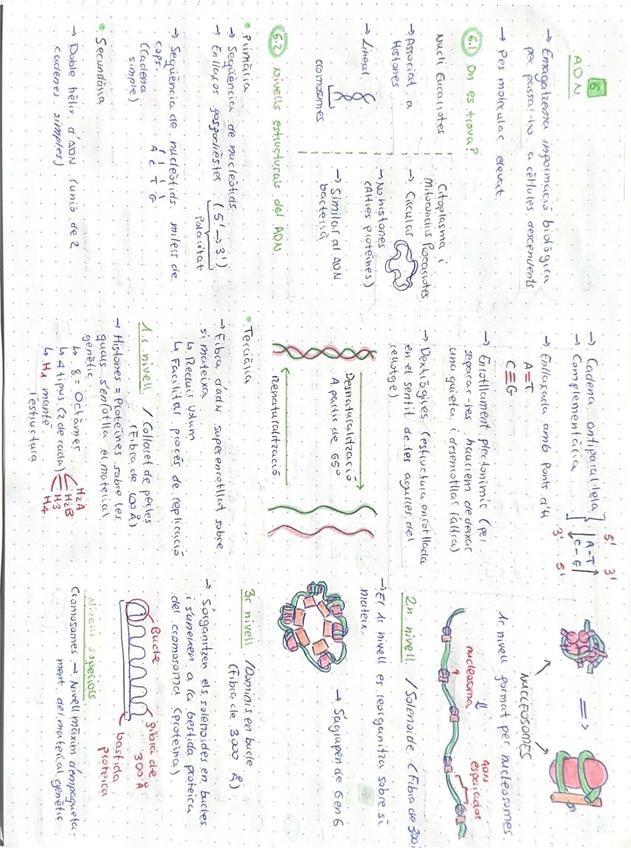 6
ADN
→ Emagatzema informació biològica
per passar-ho a cèl·lules descendents
→ Pes molecular elevat
6.1 On es troba?
Nucli Eucariotes
→ Associat a
Histones
→ Lineal
cromosomes
Citoplasma i
Mitocondris Procariotes
→ Circular
→ No histones
(Altres proteïnes)
→ Similar al ADN
bacterià
6.2 Nivells estructurals del ADN
• Primària
→ Seqüència de nucleòtids
→ Enllaços fosfodièster (5'→3')
Polaritat
→ Seqüència de nucleòtids. milers de
cops.
(Cadena
simple)
A C T G
• Secundària
→ Doble hèlix d'ADN (unió de 2
cadenes simples)
→ Cadena antiparal·lela
→ Complementària
5' 3'
A-T
C-G
3' 5'
→ Enllaçada amb Ponts d'H
A=T
C≡G
→ Enrotllament plectonímic (per
separar-les hauríem de deixar
una quieta i desenrotllar l'altra)
→ Dextrògires (estructura enrotllada
en el sentit de les agulles del
rellotge)
Desnaturalització
A partir de 65°
Renaturalització
• Terciària
→ Fibra d'ADN superenrotllat sobre
si mateixa
↳ Reduir Volum
↳ Facilitar procés de replicació
1r nivell / Collaret de perles
(Fibra de 100 Å)
→ Histones = Proteïnes sobre les
quals s'enrotlla el material
genètic
↳ 8 = Octàmer
↳ 4 tipus (2 de cada)
H2A
H2B
H3
H4
↳ H1 manté
l'estructura
NUCLEOSOMES
1r nivell format per nucleosomes.
nucleosoma
ADN
espaiador
2n nivell / Solenoide (Fibra de 300
→ El 1r nivell es reorganitza sobre si
mateix.
→ S'agrupen de 6 en 6
3r nivell / Dominis en bucle
(Fibra de 3000 Å)
→ S'organitzen els solenoides en bucles
i s'uneixen a la bastida proteica
del cromosoma (proteïna)
Bucle
fibra de
300 Å
bastida
proteica
Nivells superiors
Cromosomes → Nivell màxim d'empaqueta-
ment del material genètic